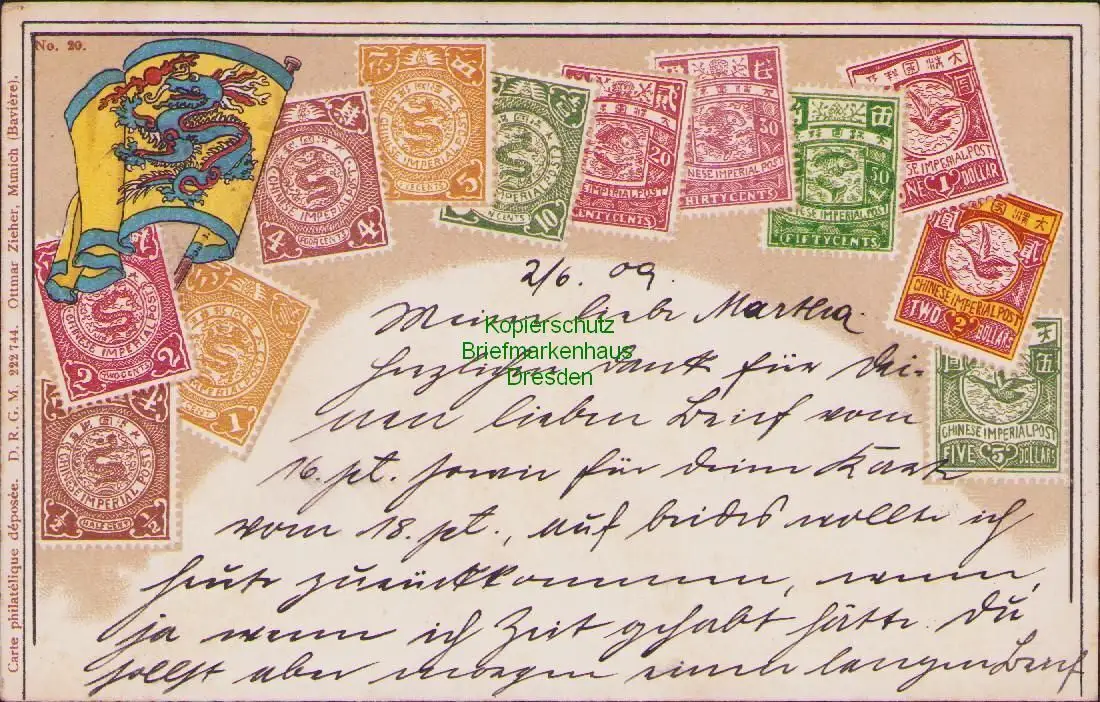 No. 20.
Carte philatélique déposée. D. R. G. M. 222 744. Ottmar Zieher, Munich (Bavière).
CHINESE IMPERIAL POST
4 4
CHINESE IMPERIAL POST
5
CHINESE IMPERIAL POST
CENTS 10
貳
20
IMPERIAL POST
30
NESE IMPERIAL POST
THIRTY CENTS
伍
50
CHINESE IMPERIAL POST
(FIFTY CENTS)
大清國
圓
IMPERIAL POST
1 DOLLAR
大清國
貳圓
CHINESE IMPERIAL POST
TWO 2 DOLLARS
伍
CHINESE IMPERIAL POST
FIVE 5 DOLLARS
CHINESE IMPERIAL POST
2 TWO CENTS 2
CHINESE IMPERIAL POST
CENT 1
CHINESE IMPERIAL POST
1/2 HALF CENT 1/2
2/6. 09.
Meine liebe Martha.
Herzlichen Dank für Dei-
nen lieben Brief vom
16. pt. sowie für Deine Karte
vom 18. pt., auf beides wollte ich
heute zurückkommen, wenn,
ja wenn ich Zeit gehabt hätte. Du
sollst aber morgen einen langen Brief
Kopierschutz
Briefmarkenhaus
Dresden